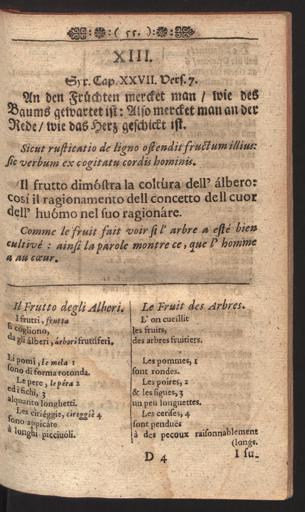 ( 55. )
XIII.
Syr. Cap. XXVII. Vers. 7.
An den Früchten mercket man / wie des
Baums gewartet ist: Also mercket man an der
Rede / wie das Herz geschickt ist.
Sicut rusticatio de ligno ostendit fructum illius:
sic verbum ex cogitatu cordis hominis.
Il frutto dimóstra la coltúra dell' álbero:
cosí il ragionamento dell concetto dell cuor
dell' huómo nel suo ragionáre.
Comme le fruit fait voir si l' arbre a esté bien
cultivé : ainsi la parole montre ce, que l' homme
a au cœur.
Il Frutto degli Alberi.
I frutti, frutta
si cógliono,
da gli álberi, árbori fruttíferi.
Li pomi, le mela 1
sono di forma rotonda.
Le pere, le péra 2
ed i fichi, 3
alquanto longhetti.
Le ciriéggie, cireggiè 4
sono appicáte
à longhi picciuóli.
Le Fruit des Arbres.
L' on cueillit
les fruits,
des arbres fruitiers.
Les pommes, 1
sont rondes.
Les poires, 2
& les figues, 3
un peu longuettes.
Les cerises, 4
sont penduës
à des pecoux raisonnablement
(longs.
D 4
I su-